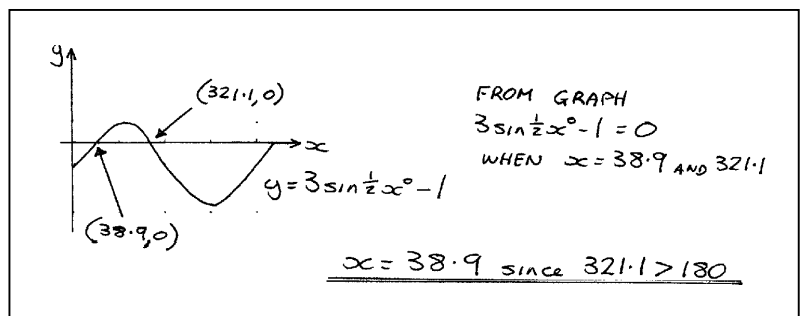 y
(321·1,0)
x
y=3sin½x°-1
(38·9,0)
FROM GRAPH
3sin½x°-1=0
WHEN x=38·9 AND 321·1
x=38·9 since 321·1>180